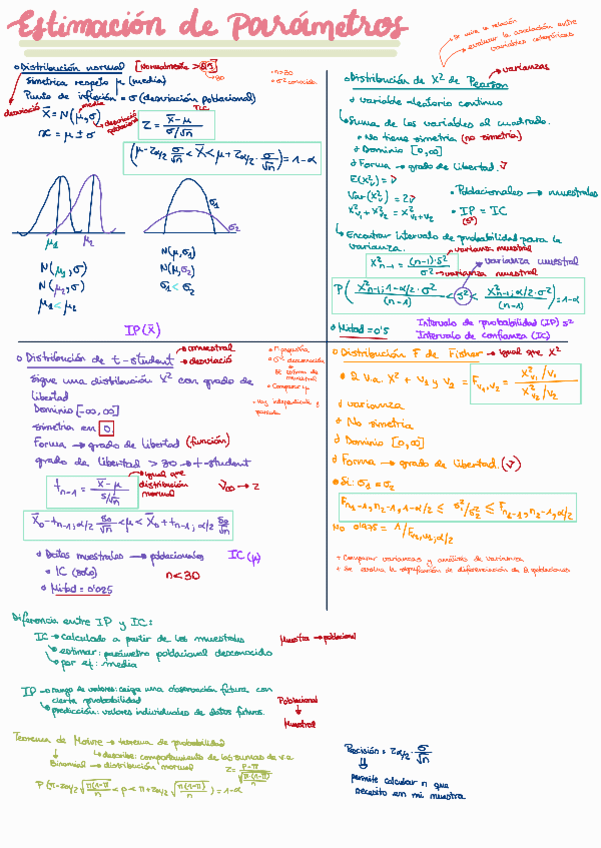 Estimación de Parámetros
Distribución normal [Normalmente >
>30
Simetrica respeto μ (media)
Punto de inflexión = σ (desviación poblacional)
desviació
media
X̄ = N(μ,σ)
desviació poblacional
x = μ ± σ
TLC
Z = (X̄ - μ) / (σ/√n)
(μ - Zα/2 σ/√n < X̄ < μ + Zα/2 · σ/√n) = 1-α
μ1 μ2
σ1
σ2
N(μ1,σ)
N(μ2,σ)
μ1 < μ2
N(μ,σ1)
N(μ,σ2)
σ1 < σ2
IP(X̄)
Se mira la relación
evaluar la asociación entre
variables categóricas
Distribución de X² de Pearson → varianzas
variable aleatorio continuo
Suma de les variables al cuadrado.
No tiene simetria (no simetria)
Dominio [0,∞]
Forma → grado de libertad. ν
E(X²ν) = ν
Var(X²ν) = 2ν
X²ν1 + X²ν2 = X²ν1+ν2
Poblacionales → muestrales
IP = IC
(S²)
Encontrar intervalo de probabilidad para la
varianza.
varianza muestral
X²n-1 = (n-1)·S² / σ²
varianza muestral
varianza muestral
P( X²n-1; 1-α/2 · σ² / (n-1) < S² < X²n-1; α/2 · σ² / (n-1) ) = 1-α
Mitad = 0'5
Intervalo de probabilidad (IP) S²
Intervalo de confianza (IC)
Distribución de t-student
→ desviació
n pequeña
Comparar μ
Sigue una distribución X² con grado de
libertad
Dominio [-∞,∞]
simetria en 0
Forma → grado de libertad (función)
grado de libertad > 30 → t-student
t n-1 = (X̄ - μ) / (S/√n)
igual que
distribución
normal
ν∞ → Z
X̄0 - t n-1; α/2 S0/√n < μ < X̄0 + t n-1; α/2 S0/√n
Datos muestrales → poblacionales
IC (μ)
IC (solo)
n<30
Mitad = 0'025
Distribución F de Fisher → igual que X²
Si v.a. X² + ν1 y ν2 = Fν1,ν2 = (X²ν1/ν1) / (X²ν2/ν2)
varianza
No simetria
Dominio [0,∞]
Forma → grado de libertad. (ν)
Si σ1 = σ2
Fn1-1, n2-1, 1-α/2 ≤ S1²/S2² ≤ Fn1-1, n2-1, α/2
No 0'975 = 1/Fν2,ν1; α/2
+ Comparar varianzas y análisis de varianza
+ Se evalua la significación de diferenciación de 2 poblaciones
Diferencia entre IP y IC:
IC → calculado a partir de los muestrales
Muestra → poblacional
estimar: parámetro poblacional desconocido
por ej: media
IP → rango de valores: caiga una observación futura con
cierta probabilidad
predicción: valores individuales de datos futuros.
Poblacional
Muestral
Teorema de Moivre → teorema de probabilidad
describe: comportamiento de las sumas de v.a
Binomial → distribución normal
Z = (P-π) / √(π(1-π)/n)
P(π - Zα/2 √(π(1-π)/n) < p < π + Zα/2 √(π(1-π)/n)) = 1-α
Precisión = Zα/2 · σ/√n
permite calcular n que
necesito en mi muestra